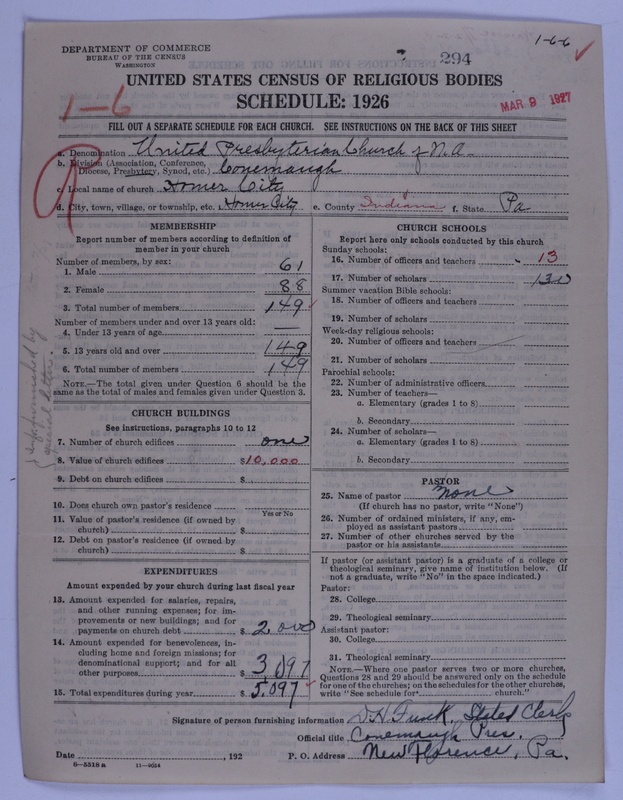 1-6-6
DEPARTMENT OF COMMERCE
BUREAU OF THE CENSUS
WASHINGTON
294
UNITED STATES CENSUS OF RELIGIOUS BODIES
SCHEDULE: 1926
1-6
MAR 9 1927
FILL OUT A SEPARATE SCHEDULE FOR EACH CHURCH. SEE INSTRUCTIONS ON THE BACK OF THIS SHEET
a. Denomination United Presbyterian Church of N.A.
b. Division (Association, Conference, Diocese, Presbytery, Synod, etc.) Conemaugh
c. Local name of church Homer City
d. City, town, village, or township, etc. Homer City e. County Indiana f. State Pa
MEMBERSHIP
Report number of members according to definition of
member in your church
Number of members, by sex:
1. Male 61
2. Female 88
3. Total number of members 149
Number of members under and over 13 years old:
4. Under 13 years of age —
5. 13 years old and over 149
6. Total number of members 149
NOTE.—The total given under Question 6 should be the
same as the total of males and females given under Question 3.
CHURCH BUILDINGS
See instructions, paragraphs 10 to 12
7. Number of church edifices one
8. Value of church edifices $10,000
9. Debt on church edifices $
10. Does church own pastor's residence
Yes or No
11. Value of pastor's residence (if owned by
church) $
12. Debt on pastor's residence (if owned by
church) $
EXPENDITURES
Amount expended by your church during last fiscal year
13. Amount expended for salaries, repairs,
and other running expenses; for im-
provements or new buildings; and for
payments on church debt $ 2,000
14. Amount expended for benevolences, in-
cluding home and foreign missions; for
denominational support; and for all
other purposes $ 3,097
15. Total expenditures during year $ 5,097
CHURCH SCHOOLS
Report here only schools conducted by this church
Sunday schools:
16. Number of officers and teachers 13
17. Number of scholars 130
Summer vacation Bible schools:
18. Number of officers and teachers
19. Number of scholars
Week-day religious schools:
20. Number of officers and teachers
21. Number of scholars
Parochial schools:
22. Number of administrative officers
23. Number of teachers—
a. Elementary (grades 1 to 8)
b. Secondary
24. Number of scholars—
a. Elementary (grades 1 to 8)
b. Secondary
PASTOR
25. Name of pastor None
(If church has no pastor, write "None")
26. Number of ordained ministers, if any, em-
ployed as assistant pastors
27. Number of other churches served by the
pastor or his assistants
If pastor (or assistant pastor) is a graduate of a college or
theological seminary, give name of institution below. (If
not a graduate, write "No" in the space indicated.)
Pastor:
28. College
29. Theological seminary
Assistant pastor:
30. College
31. Theological seminary
NOTE.—Where one pastor serves two or more churches,
Questions 28 and 29 should be answered only on the schedule
for one of the churches; on the schedules for the other churches,
write "See schedule for church."
Signature of person furnishing information D.H. Funk, Stated Clerk
Official title Conemaugh Pres.
Date , 192 P. O. Address New Florence, Pa.
8—5518a 11—9034
furnished by
special letter.